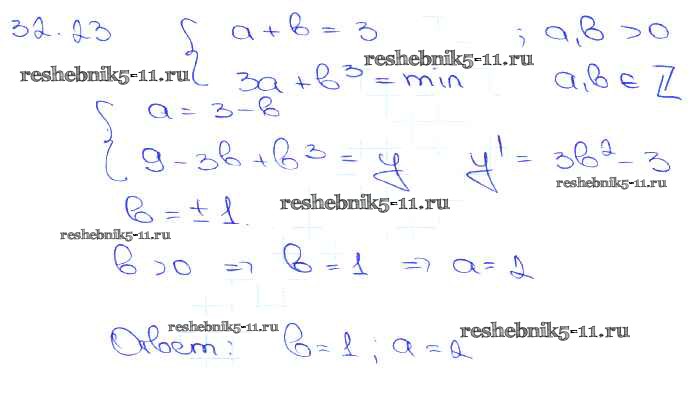 32.23 { a + b = 3 ; a,b > 0
reshebnik5-11.ru reshebnik5-11.ru
3a + b³ = min a,b ∈ Z
{ a = 3 - b
9 - 3b + b³ = y y' = 3b² - 3
reshebnik5-11.ru
b = ± 1. reshebnik5-11.ru
reshebnik5-11.ru
b > 0 => b = 1 => a = 2
reshebnik5-11.ru reshebnik5-11.ru
Ответ: b = 1 ; a = 2